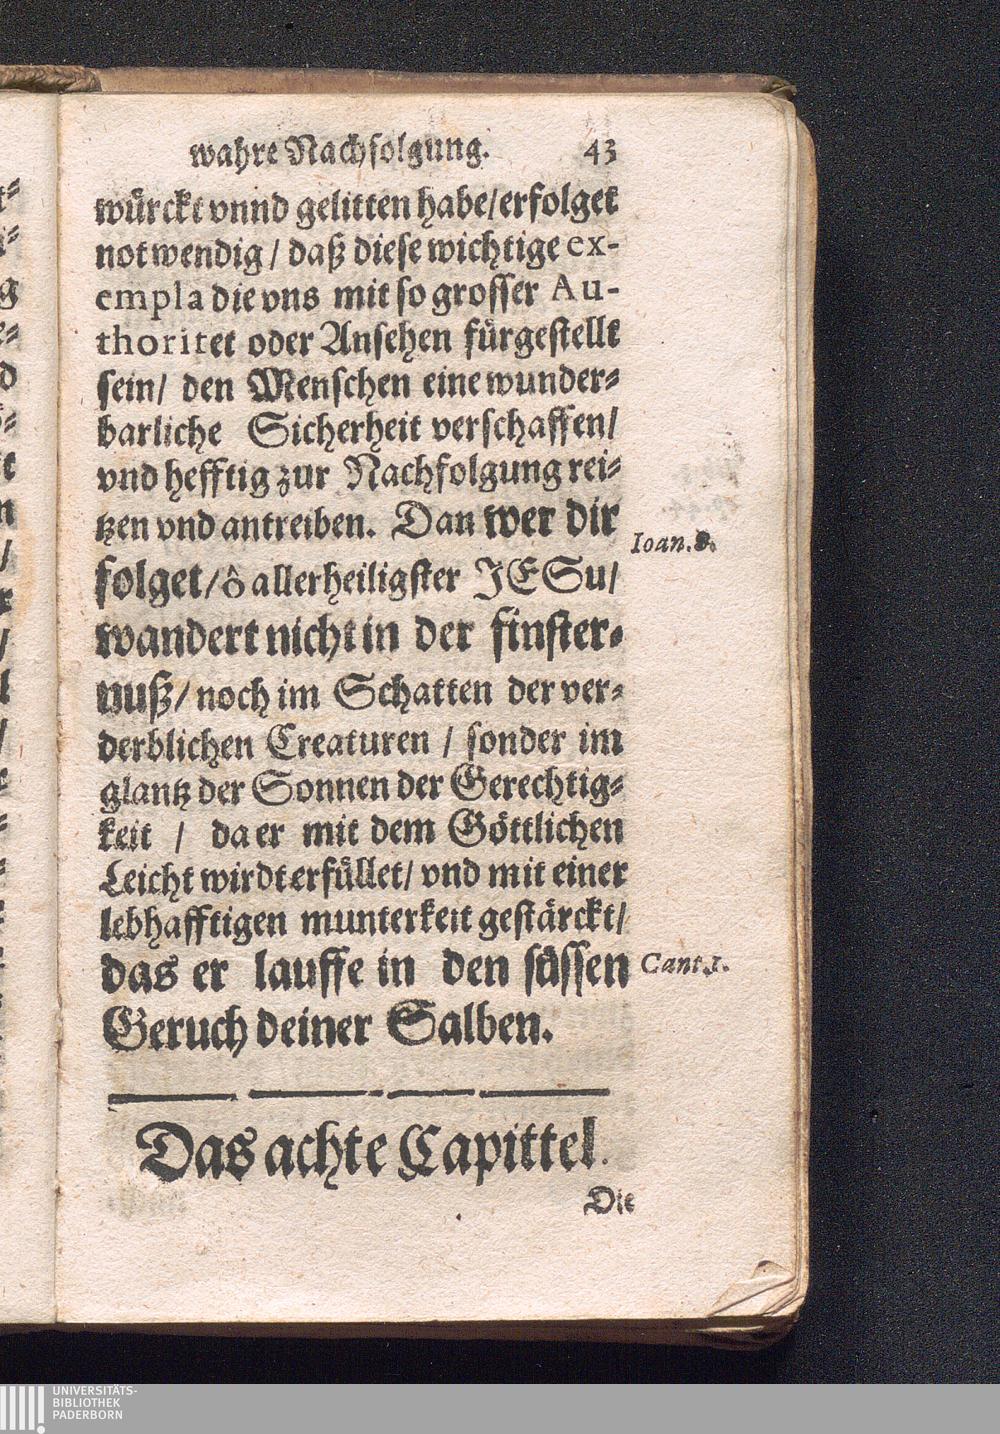 wahre Nachfolgung. 43
würckt vnnd gelitten habe/erfolget
notwendig/ daß diese wichtige ex-
empla die vns mit so grosser Au-
thoritet oder Ansehen fürgestellt
sein/ den Menschen eine wunder-
barliche Sicherheit verschaffen/
vnd hefftig zur Nachfolgung rei-
tzen vnd antreiben. Dan wer dir
Ioan. 8.
folget/ô allerheiligster JESu/
wandert nicht in der finster-
nuß/noch im Schatten der ver-
derblichen Creaturen / sonder im
glantz der Sonnen der Gerechtig-
keit / da er mit dem Göttlichen
Leicht wirdt erfüllet/ vnd mit einer
lebhafftigen munterkeit gestärckt/
das er lauffe in den süssen
Cant. 1.
Geruch deiner Salben.
Das achte Capittel.
Die
UNIVERSITÄTS-
BIBLIOTHEK
PADERBORN